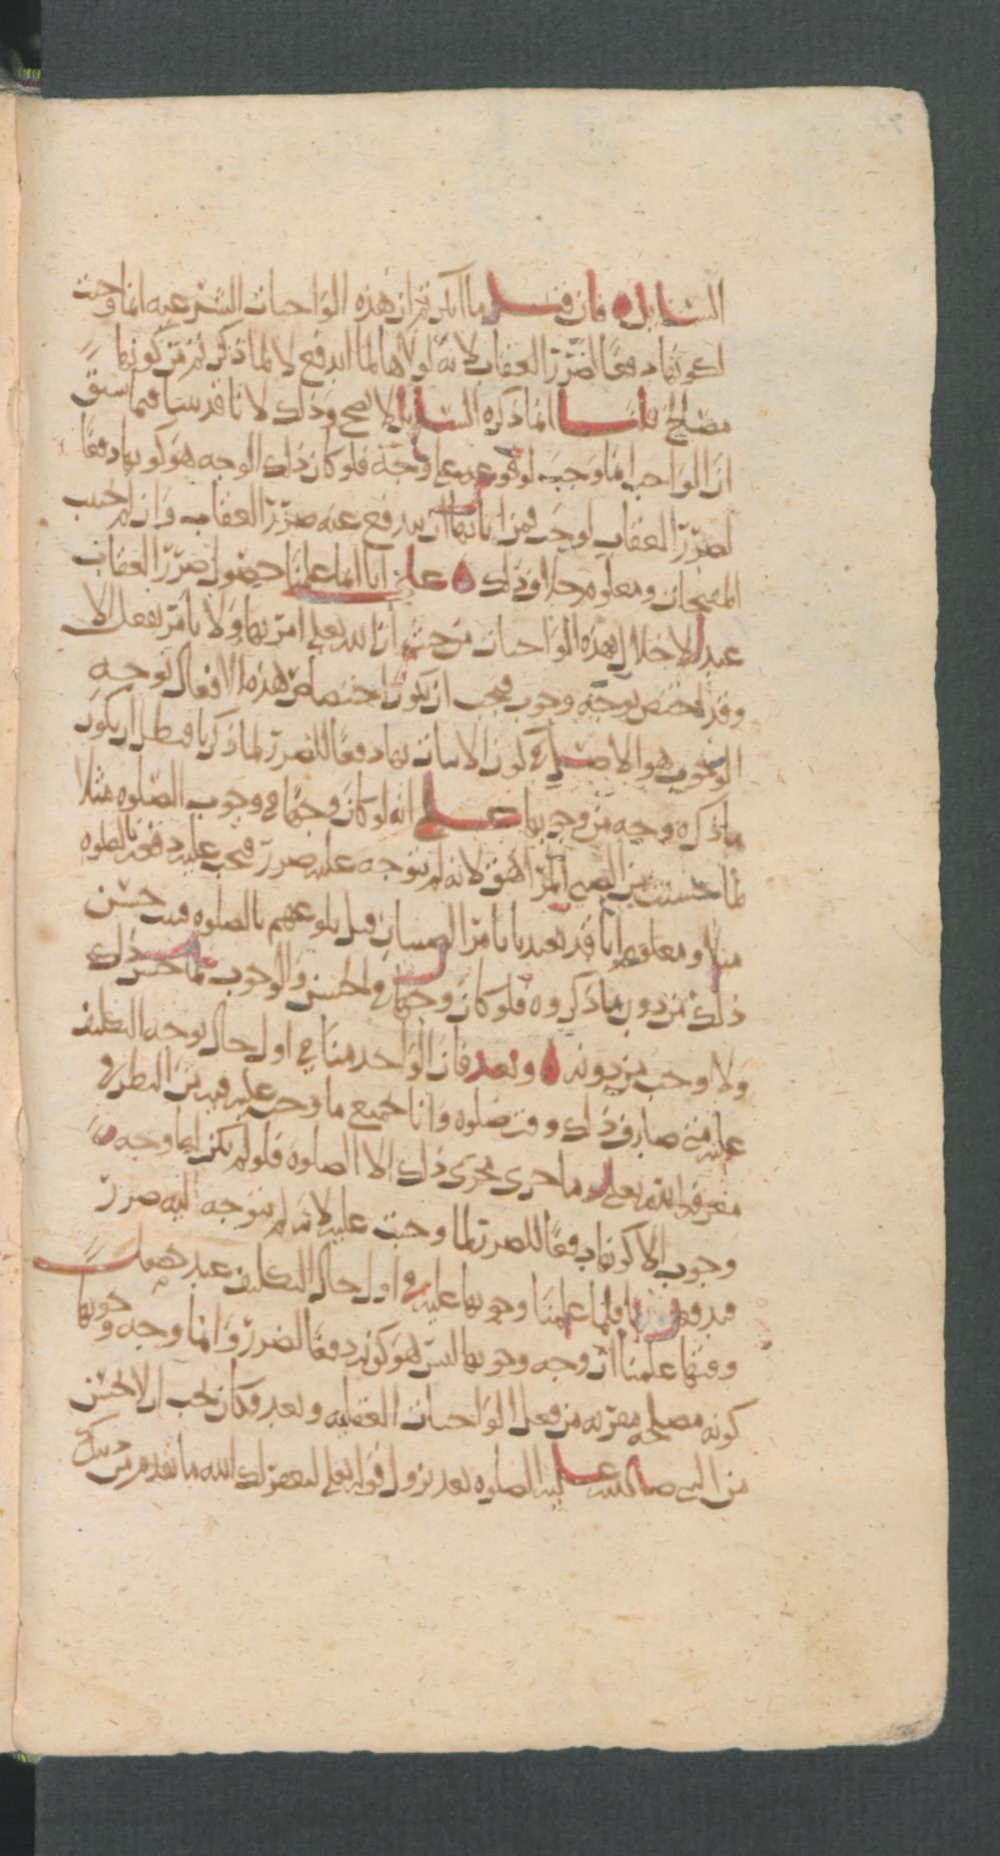 السايل فان قيل ما انكرتم ان هذه الواجبات الشرعيه انما وجبت
لكونها دفعًا لضرر العقاب لانه لولاها لما اندفع لا لما ذكرتم من كونها
مصلح قلنا انما ذكره السايل لا يصح وذلك لانا قد بينا فيما سبق
ان الواجب انما وجب لوقوعه على وجه فلو كان ذلك الوجه هو كونها دفعًا
لضرر العقاب لوجب فيمن اتا بها ان يندفع عنه ضرر العقاب وان لم يجتنب
المقبحات ومعلوم خلاف ذلك على انا انما علمنا حصول ضرر العقاب
عند الاخلال بهذه الواجبات من حيث ان الله تعلى امر بها ولا يامر بفعل الا
وقد اختص بوجه وجوب فيجب ان يكون اختصاص هذه الافعال بوجه
الوجوب هو الاصل في كون الاتيان بها دفعًا للضرر لما ذكرنا فبطل ان يكون
ما ذكره وجه من وجوبها على انه لو كان وجهًا في وجوب الصلوه مثلا
لما حسنت من الصبي لانه لم يتوجه عليه ضرر فيجب عليه دفعه بالصلوه
منا ومعلوم انا قد تعبدنا بامر الصبيان قبل بلوغهم بالصلوه حسن
ذلك من دون ما ذكروه فلو كان وجهًا في الحسن والوجوب لما حسن ذلك
ولا وجب من دونه وبعد فان الواحد منا في اول حال توجه التكليف
عليه متى صادف ذلك وقت صلوه واتا جميع ما وجب عليه فيه من النظر في
معرفه الله تعلى وما جرى مجرى ذلك الا الصلوه فلو لم يكن لها وجه
وجوب الا كونها دفعًا للضرر لما وجبت عليه لانه لم يتوجه اليه ضرر
فيدفعه بها فلما علمنا وجوبها عليه في اول حال التكليف عند
وقتها علمنا ان وجه وجوبها ليس هو كونه دفعًا لضرر وانما وجه وجوبها
كونه مصلحه مقربه من فعل الواجبات العقليه وبعد فكان يجب ان لا يحسن
من النبي صلى الله عليه الصلوه بعد نزول قوله تعلى ليغفر لك الله ما تقدم من ذنبك